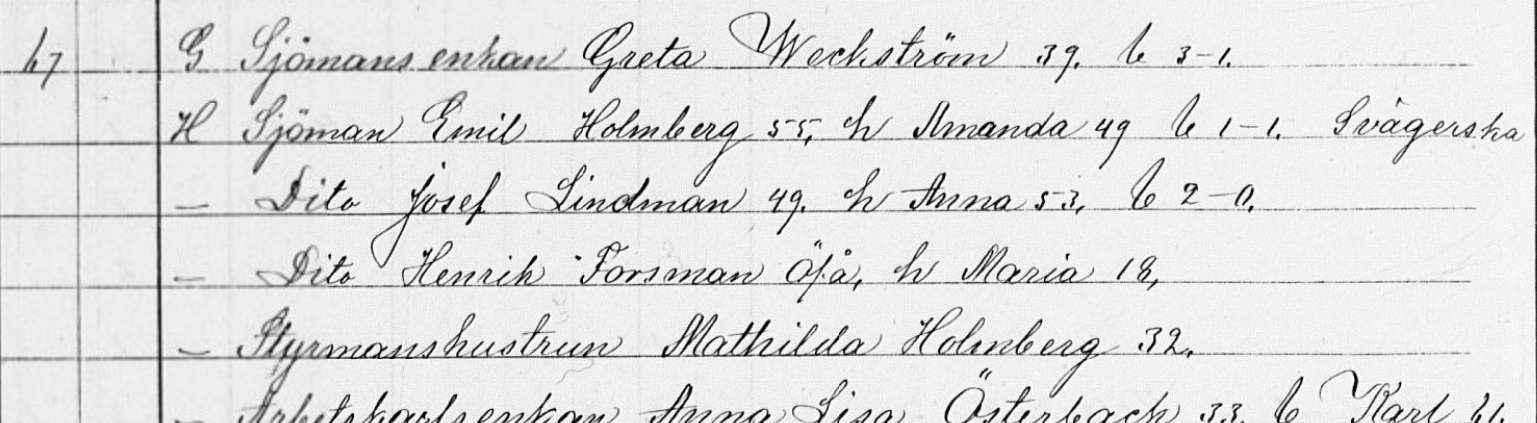 67 G Sjömans enkan Greta Weckström 39. b 3-1.
H Sjöman Emil Holmberg 55, h Amanda 49 b 1-1. Svägerska
— Dito Josef Lindman 49. h Anna 53, b 2-0.
— Dito Henrik Forsman öfå, h Maria 18,
— Styrmanshustrun Mathilda Holmberg 32.
— Arbetskarlsenkan Anna Lisa Österback 33. b Karl 61.